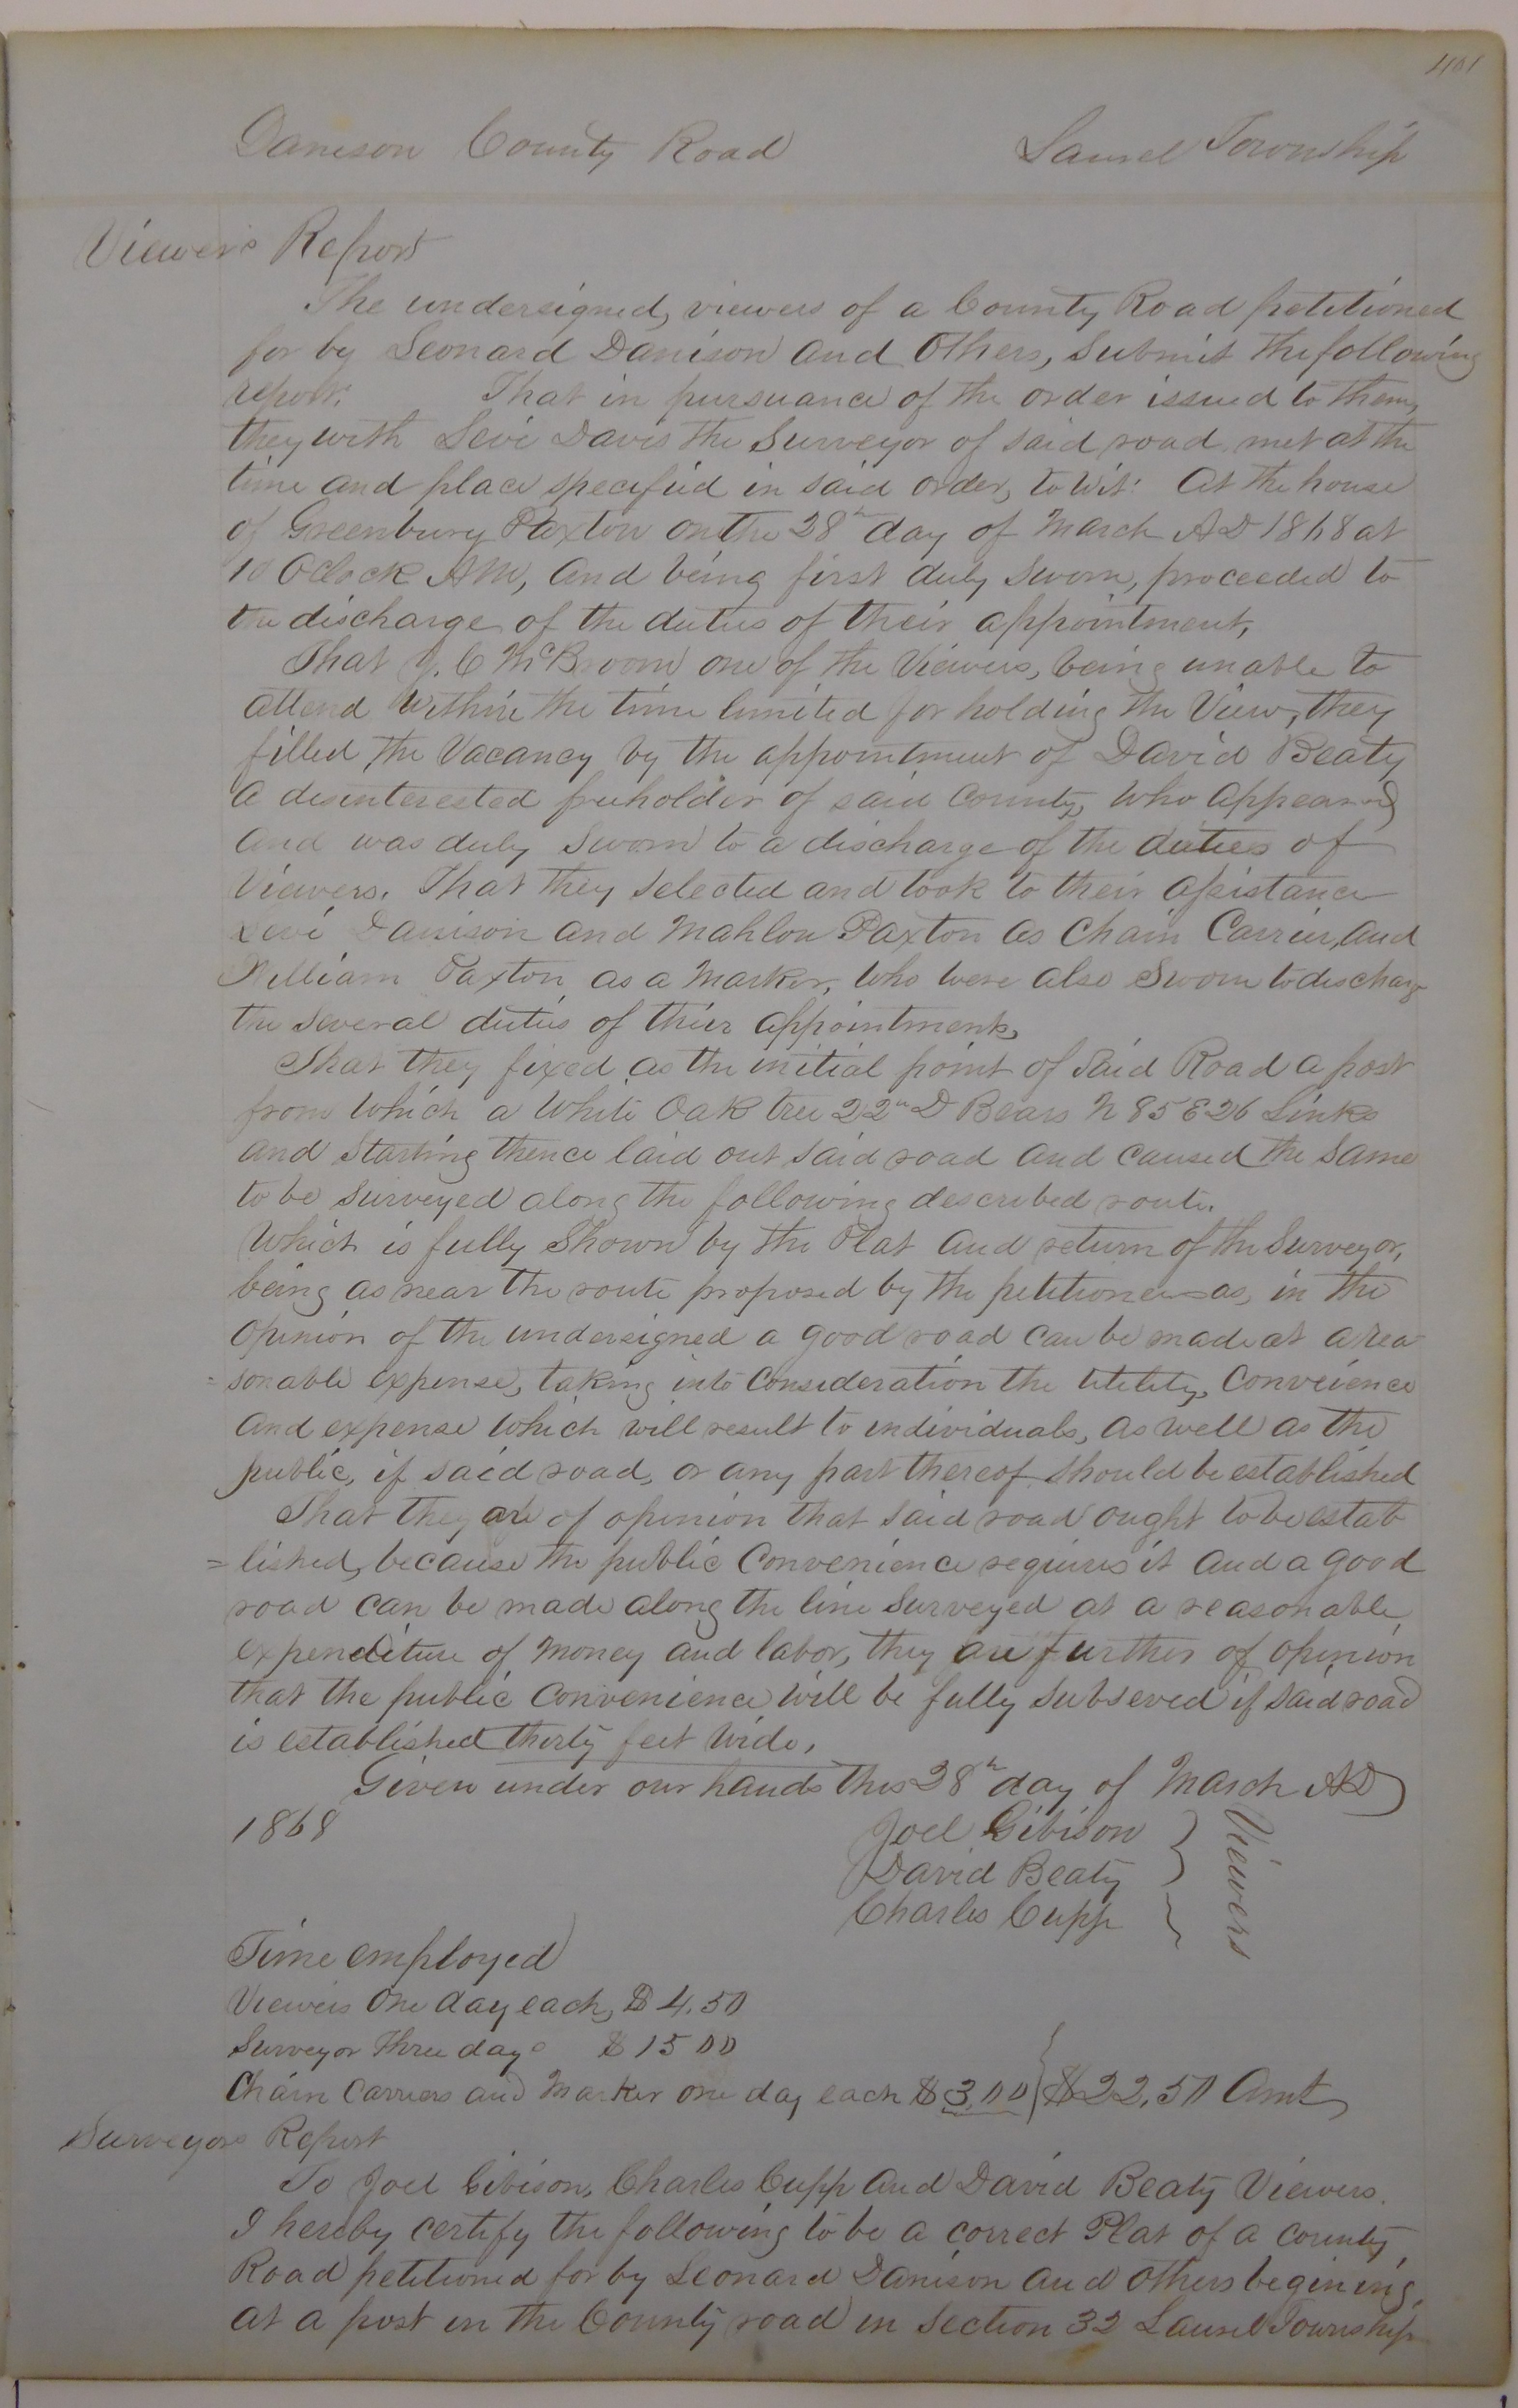 401
Danison County Road Laurel Township
Viewers Report
The undersigned, viewers of a County Road petitioned
for by Leonard Danison and Others, Submit the following
report: That in pursuance of the order issued to them,
they with Levi Davis the Surveyor of said road met at the
time and place specified in said order, to wit: At the house
of Greenbury Paxton on the 28th day of March AD 1868 at
10 Oclock AM, and being first duly sworn, proceeded to
the discharge of the duties of their appointment,
That J. C McBroom one of the Viewers, being unable to
attend within the time limited for holding the View, they
filled the Vacancy by the appointment of David Beaty
a disinterested freeholder of said County, who appeared
and was duly sworn to a discharge of the duties of
Viewers. That they selected and took to their assistance
Levi Danison and Mahlon Paxton as Chain Carrier, and
William Paxton as a Marker, who were also Sworn to discharg
the several duties of thier appointments,
That they fixed as the initial point of said Road a post
from which a White Oak tree 22 in D Bears N 85 E 26 Links
and Starting thence laid out said road and caused the same
to be Surveyed along the following described route.
Which is fully Shown by the Plat and return of the Surveyor,
being as near the route proposed by the petitioners as, in the
Opinion of the undersigned a good road can be made at a rea
= sonable expense, taking into Consideration the utility, Conveience
and expense which will result to individuals, as well as the
public, if said road, or any part thereof should be established
That they are of opinion that said road ought to be estab
= lished, because the public Convenience requires it and a good
road can be made along the line Surveyed at a reasonable
expenditure of money and labor, they are further of opinion
that the public Convenience will be fully subseved if said road
is established thirty feet wide,
Given under our hands this 28th day of March AD
1868 Joel Gibison
David Beaty
Charles Cupp
Viewers
Time employed
Viewers One day each, $ 4.50
Surveyor Three days $ 15 00
Chain Carriers and Marker one day each $ 3.00 } $ 22.50 Amt
Surveyors Report
To Joel Gibison, Charles Cupp and David Beaty Viewers.
I hereby certify the following to be a correct Plat of a county
Road petitioned for by Leonard Danison and others begining,
at a post in the County road in Section 32 Laurel Township